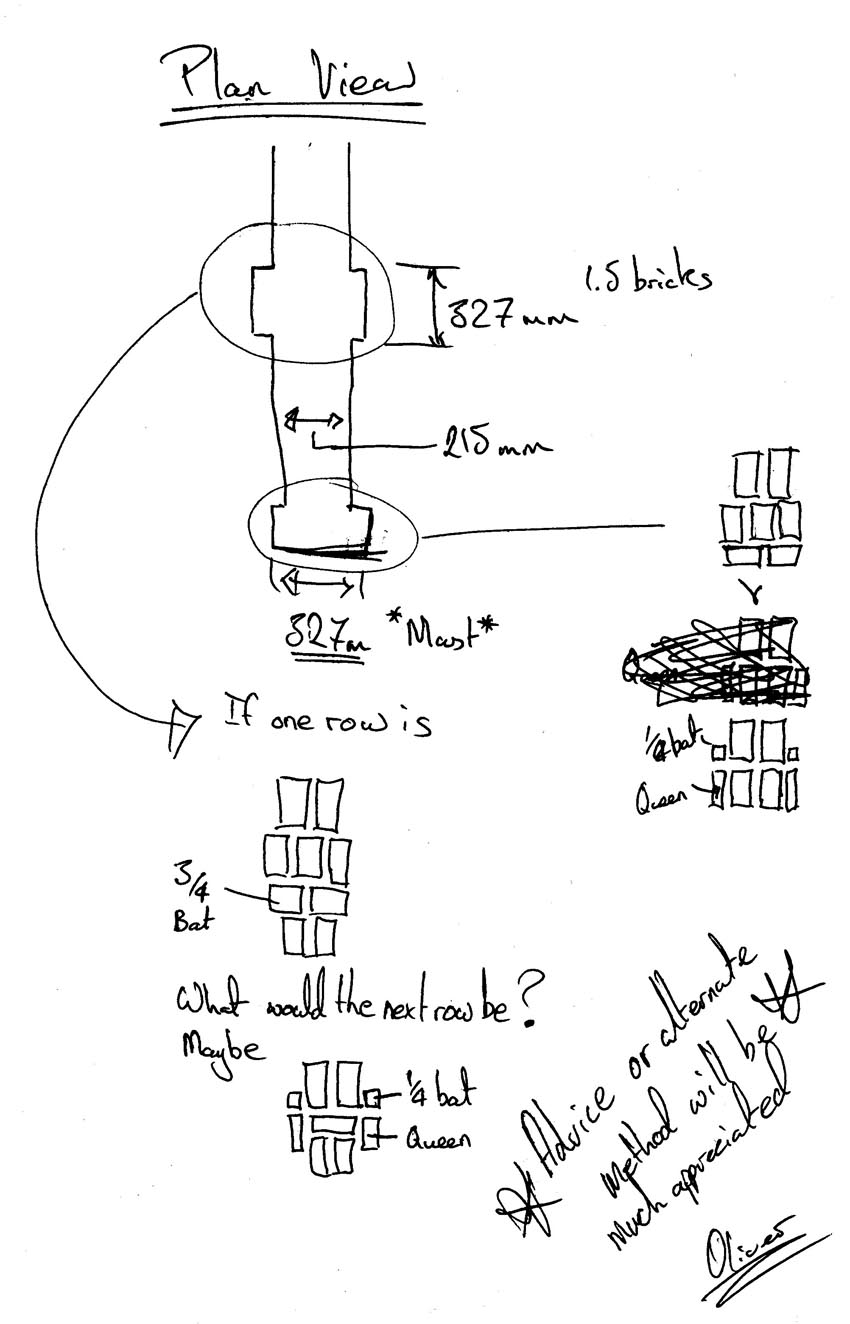 Plan View
1.5 bricks
327mm
215mm
327m *Must*
If one row is
1/4 bat
Queen
3/4
Bat
What would the next row be?
Maybe
1/4 bat
Queen
Advice or alternate
method will be
much appreciated
Oliver